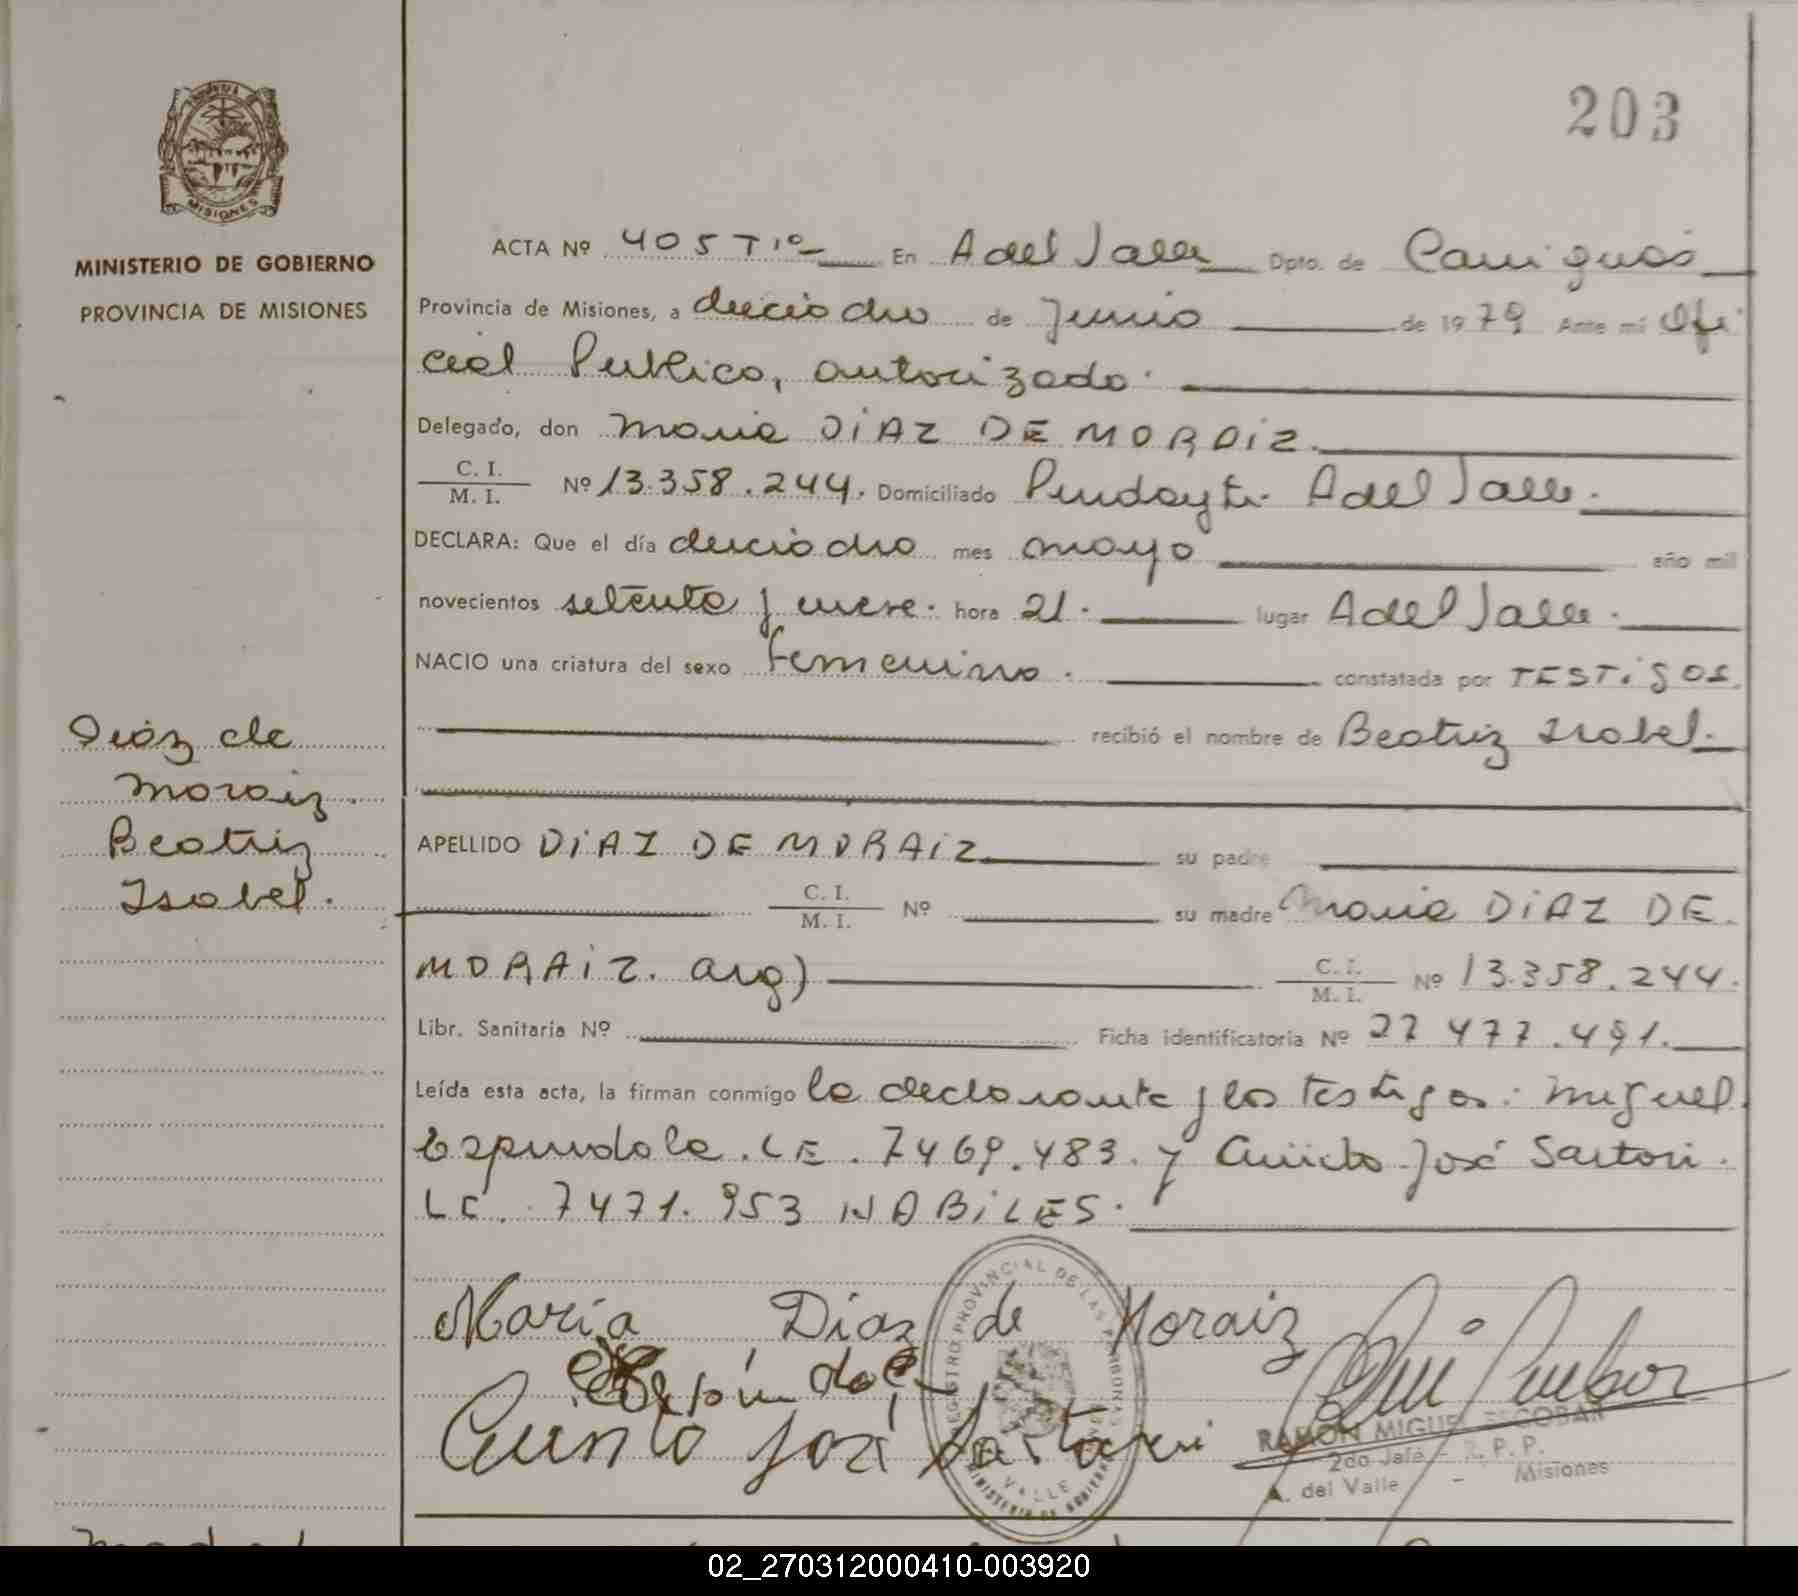 203
MISIONES
MINISTERIO DE GOBIERNO
PROVINCIA DE MISIONES
ACTA Nº 405 Tº En A del Valle Dpto. de Cainguás
Provincia de Misiones, a dieciocho de Junio de 1979 Ante mí Ofi
cial Publico, autorizado.
Delegado, don Maria DiAZ DE MORAiZ.
C. I.
M. I. Nº 13.358.244. Domiciliado Pindayti. A del Valle.
DECLARA: Que el día dieciocho mes mayo año mil
novecientos setenta y nueve. hora 21. lugar A del Valle.
NACIO una criatura del sexo femenino. constatada por TESTiGOS.
recibió el nombre de Beatriz Isabel.
Diáz de
Moraiz.
Beatriz
Isabel.
APELLIDO DiAZ DE MORAiZ su padre
C. I.
M. I. Nº su madre Maria DiAZ DE
MORAiZ. arg) C. I.
M. I. Nº 13.358.244.
Libr. Sanitaria Nº Ficha identificatoria Nº 27 477.491.
Leída esta acta, la firman conmigo la declarante y los testigos: Miguel
Espindola. LE. 7469.483. y José Sartori.
LE. 7471.953 HABiLES.
María Díaz de Moraiz
José Sartori
REGISTRO PROVINCIAL DE LAS PERSONAS
MINISTERIO DE GOBIERNO
VALLE
RAMON MIGUEL ESCOBAR
2do Jefe - R. P. P.
A. del Valle - Misiones
02_270312000410-003920